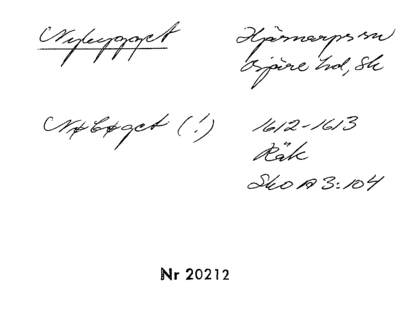 Nybygget
Hjärnarps sn
Bjäre hd, Sk
Nøbøget (!)
1612-1613
Räk
Sko A 3:104
Nr 20212